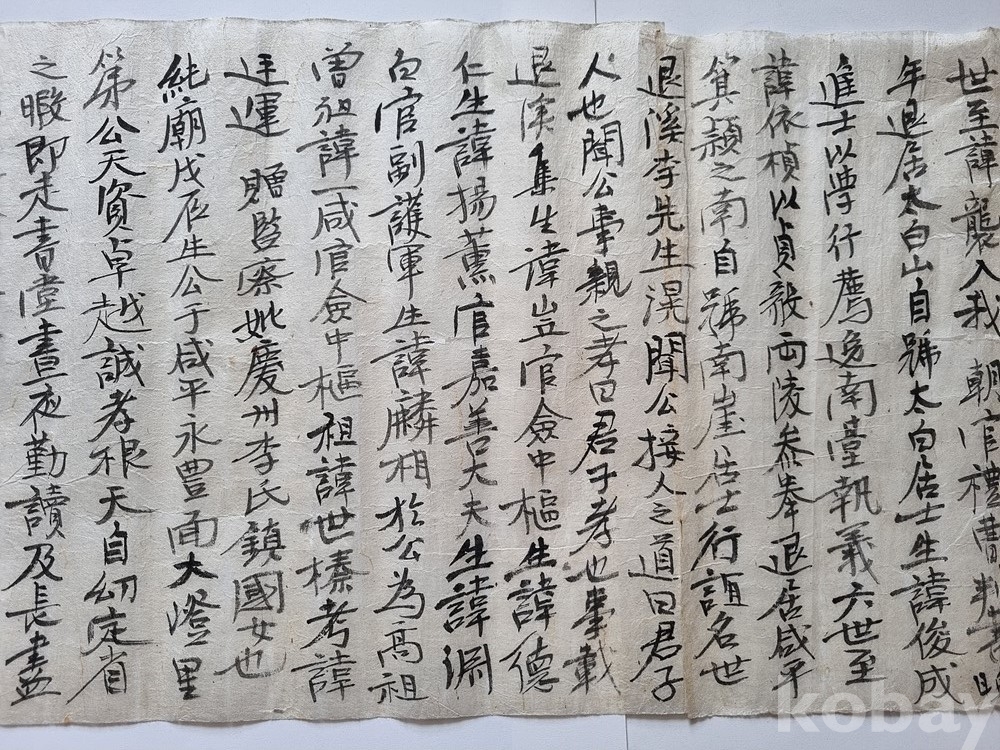 世至諱襲入我 朝官禮曹判書
年退居太白山自號太白居士生諱俊成
進士以學行薦逸南臺執義六世至
諱依楨以貞毅兩陵參奉退居咸平
箕潁之南自號南崖居士行誼名世
退溪李先生滉聞公接人之道曰君子
人也聞公事親之孝曰君子孝也事載
退溪集生諱岦官僉中樞生諱德
仁生諱揚薰官嘉善大夫生諱淵
白官副護軍生諱麟相於公為高祖
曾祖諱一咸官僉中樞祖諱世榛考諱
廷運 贈監察妣慶州李氏鎮國女也
純廟戊辰生公于咸平永豊面大澄里
第公天資卓越誠孝根天自幼定省
之暇即走書堂晝夜勤讀及長盡
kobay